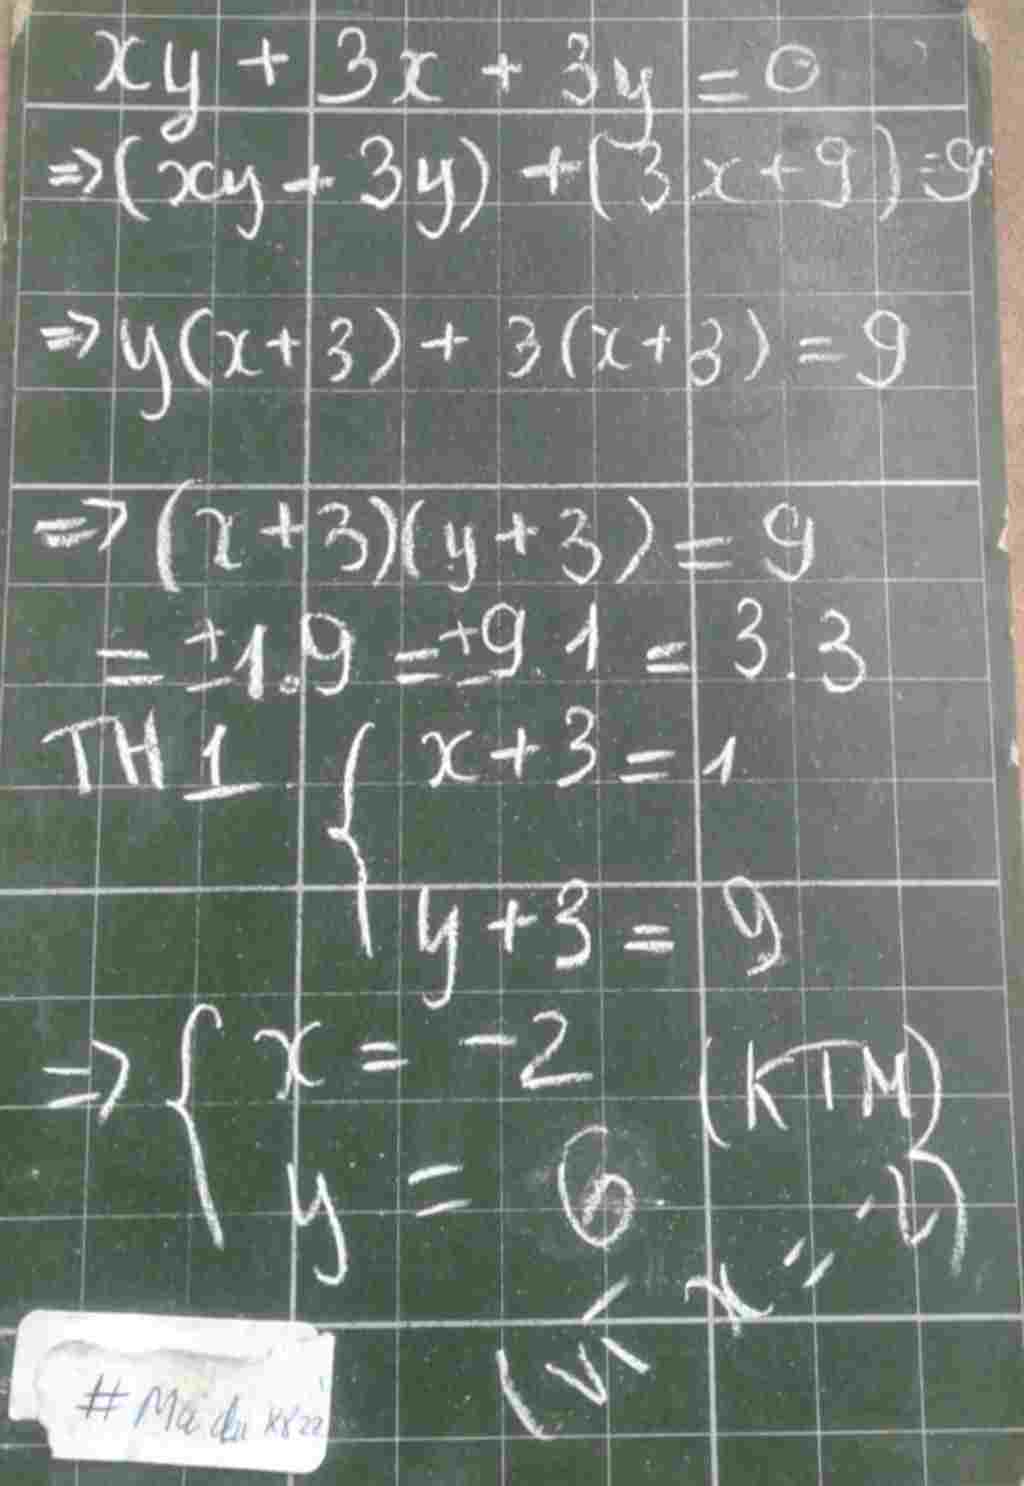 xy + 3x + 3y = 0
=> (xy + 3y) + (3x + 9) = 9
=> y(x + 3) + 3(x + 3) = 9
=> (x + 3)(y + 3) = 9
= ±1.9 = ±9.1 = 3.3
TH1 { x + 3 = 1
y + 3 = 9
=> { x = -2 (KTM)
y = 6
(vì x = -2)
# Ma du K822